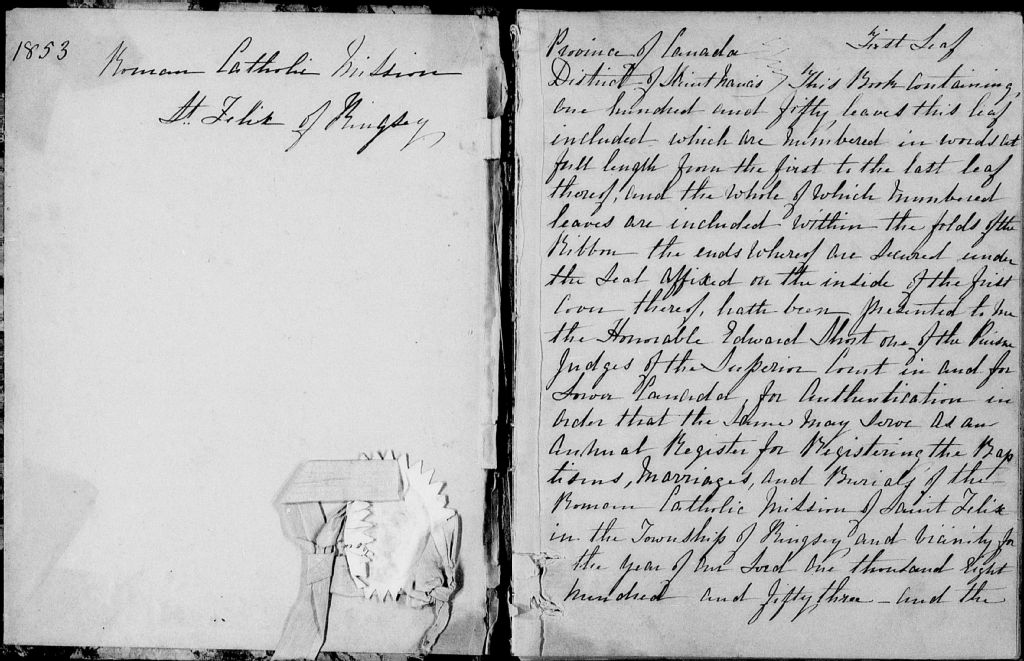 1853
Roman Catholic Mission
St. Felix of Kingsey
First Leaf
Province of Canada
District of Saint Francis } This Book Containing,
one hundred and fifty leaves this leaf
included which are numbered in words at
full length from the first to the last leaf
thereof, and the whole of which numbered
leaves are included within the folds of the
Ribbon the ends whereof are secured under
the Seal affixed on the inside of the first
Cover thereof, hath been presented to me
the Honorable Edward Short one of the Puisne
Judges of the Superior Court in and for
Lower Canada, for Authentication in
order that the same may serve as an
Annual Register for Registering the Bap
tisms, Marriages, and Burials of the
Roman Catholic Mission of Saint Felix
in the Township of Kingsey and vicinity for
the year of our Lord one thousand Eight
Hundred and fifty three – and the